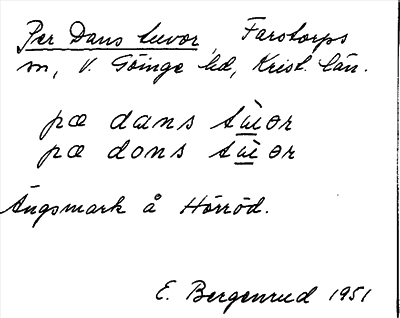 Per Dans tuvor, Farstorps
sn, V. Göinge hd, Krist. län.
pæ dans
pæ dons
Ängsmark å Hörröd.
E. Bergenrud 1951